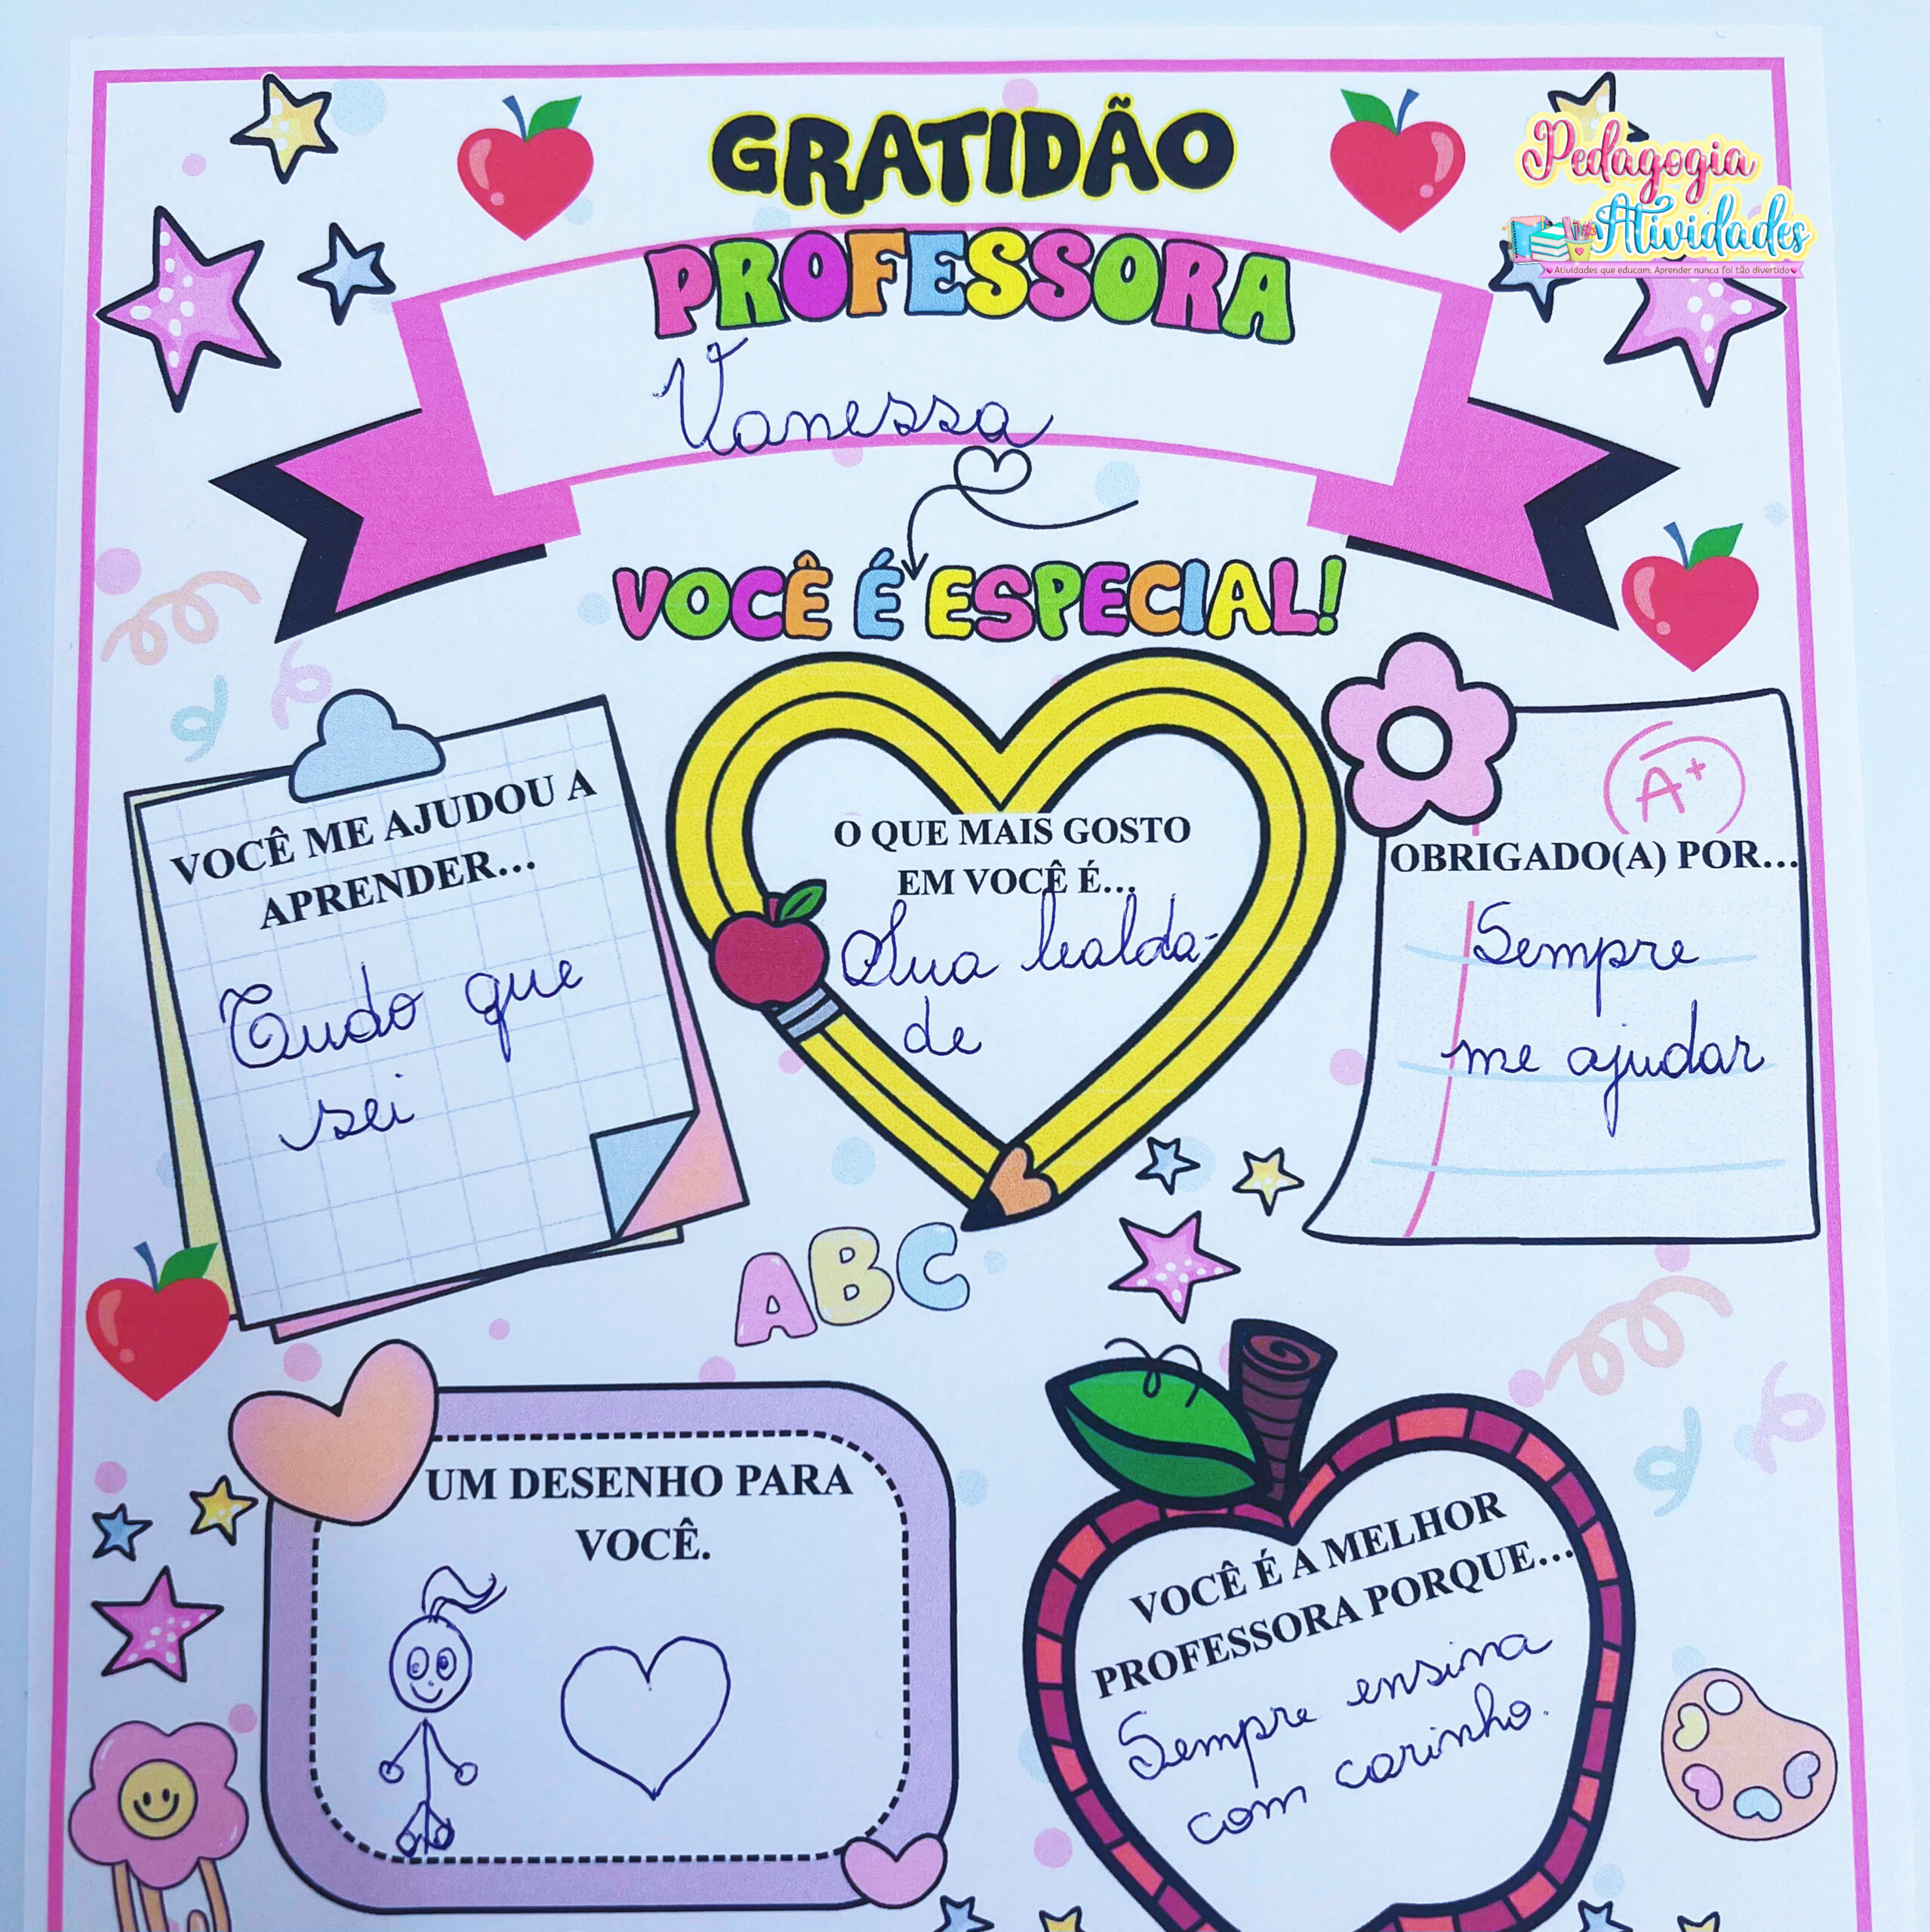 GRATIDÃO
Pedagogia
Atividades
Atividades que educam. Aprender nunca foi tão divertido
PROFESSORA
Vanessa
VOCÊ É ESPECIAL!
VOCÊ ME AJUDOU A
APRENDER...
Tudo que
sei
O QUE MAIS GOSTO
EM VOCÊ É...
Sua lealda-
de
A+
OBRIGADO(A) POR...
Sempre
me ajudar
ABC
UM DESENHO PARA
VOCÊ.
VOCÊ É A MELHOR
PROFESSORA PORQUE...
Sempre ensina
com carinho.